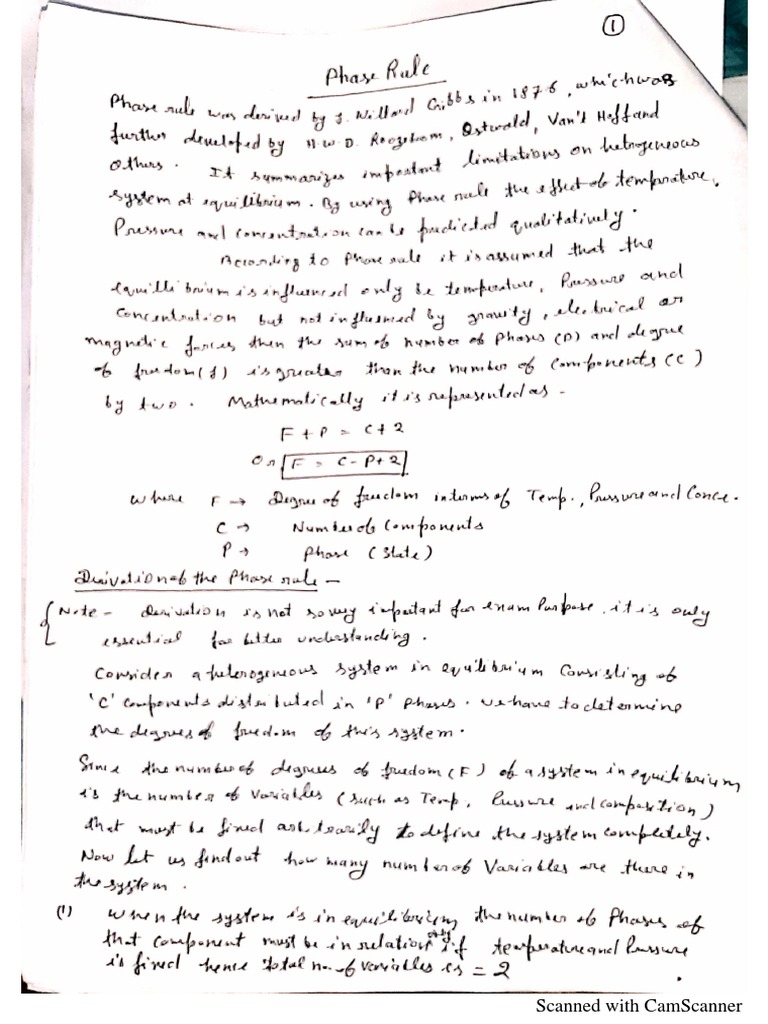 1
Phase Rule
Phase rule was derived by J. Willard Gibbs in 1876, which was
further developed by H.W.D. Roozeboom, Ostwald, Van't Hoff and
others. It summarizes important limitations on hetrogeneous
system at equilibrium. By using Phase rule the effect of temprature,
Pressure and concentration can be predicted qualitatively.
According to Phase rule it is assumed that the
equillibrium is influenced only be temprature, Pressure and
Concentration but not influenced by gravity, electrical or
magnetic forces then the sum of number of Phases (P) and degree
of freedom (f) is greater than the number of Components (C)
by two. Mathematically it is represented as -
F + P = C + 2
Or F = C - P + 2
where F → Degree of freedom interms of Temp., Pressure and Conce.
C → Number of Components
P → Phase (State)
Derivation of the Phase rule -
Note - derivation is not so very important for exam Purpose, it is only
essential for better understanding.
Consider a heterogeneous system in equilibrium Consisting of
'C' components distributed in 'P' phases. we have to determine
the degrees of freedom of this system.
Since the number of degrees of freedom (F) of a system in equilibrium
is the number of variables (such as Temp, Pressure and composition)
that must be fixed arbitrarily to define the system completely.
Now let us find out how many number of Variables are there in
the system.
(1) when the system is in equilibrium the number of Phases of
that component must be in relation only if temperature and Pressure
is fixed hence total no. of variables is = 2
Scanned with CamScanner